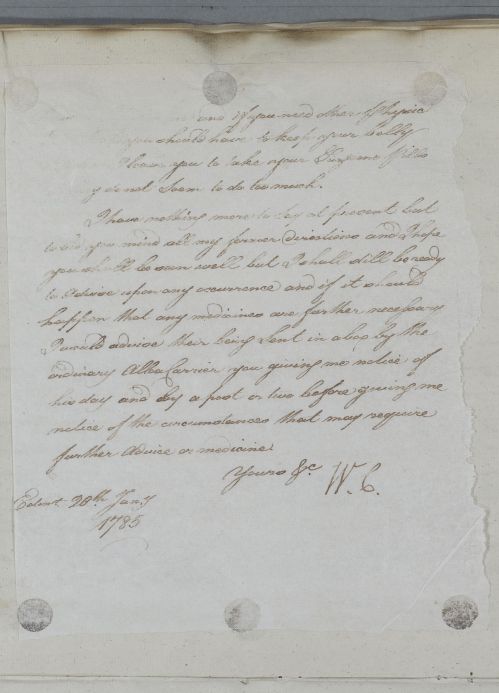 and if you need other Physic
you should have to keep your belly
I leave you to take your Pills
do not seem to do too much.
I have nothing more to say at present but
to bid you mind all my former directions and I hope
you shall be soon well but I shall still be ready
to advise upon any occurrence and if it should
happen that any medicines are further necessary
I would advise their being sent in a box by the
ordinary Alba Carrier you giving me notice of
his day and by a post or two before giving me
notice of the circumstances that may require
further advice or medicine.
Yours &c. W. C.
Edenr. 28th Jany
1785